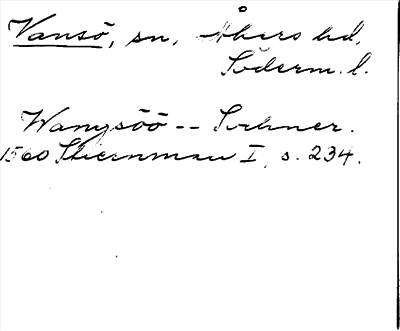 Vansö, sn, Åkers hd,
Söderm. l.
Wangsöö -- Sochner.
1560 Stiernman I, s. 234.